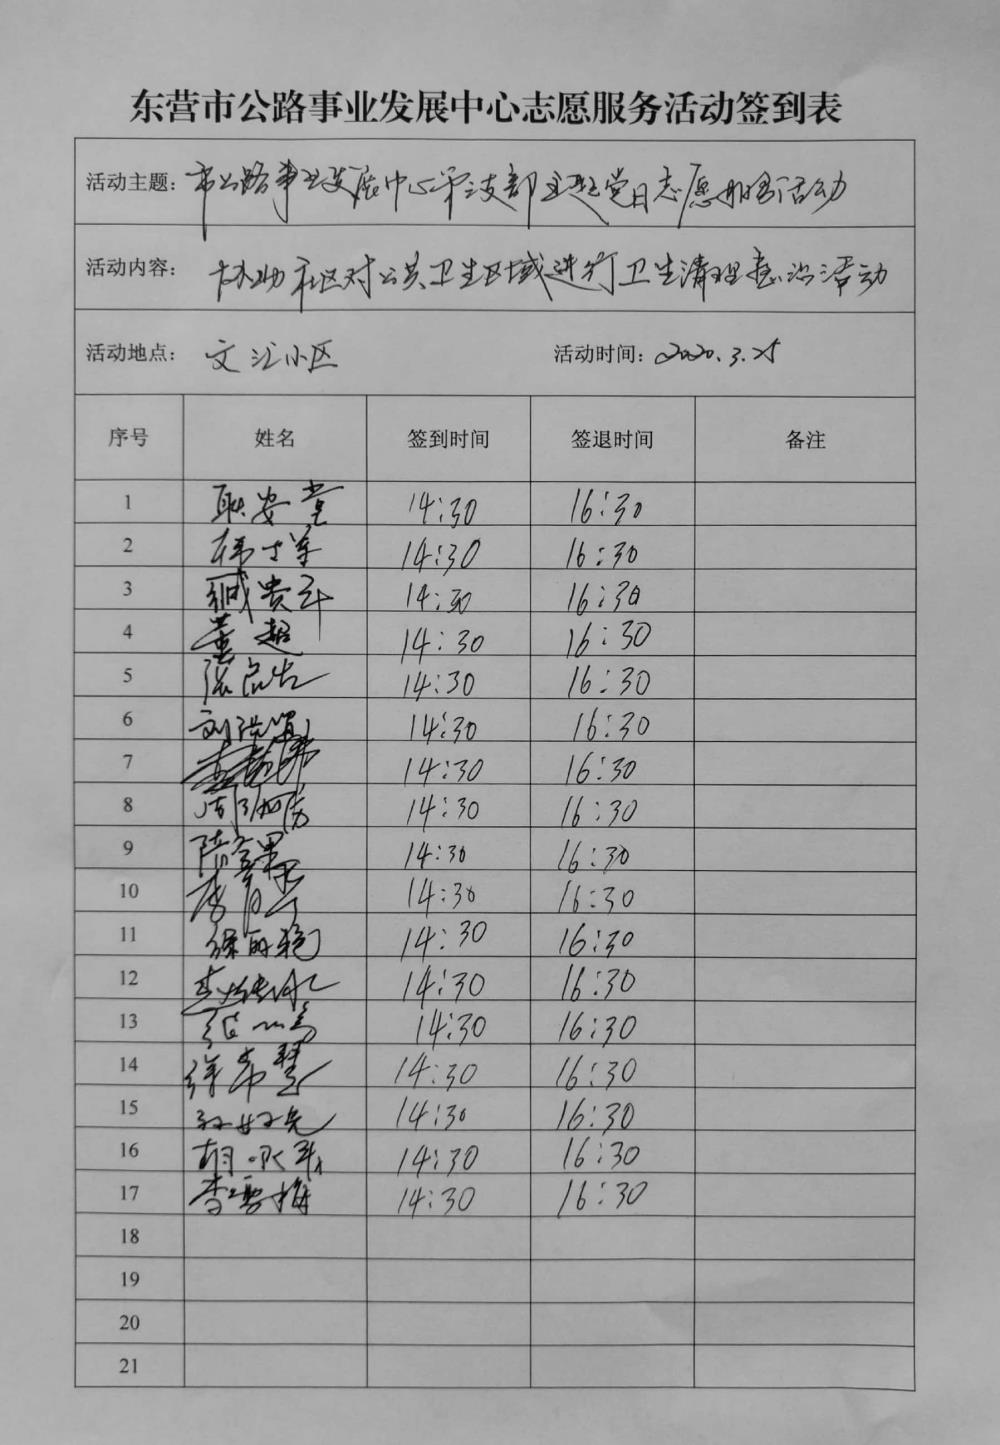 东营市公路事业发展中心志愿服务活动签到表
活动主题: 市公路事业发展中心第支部主题党日志愿服务活动
活动内容: 协助社区对公共卫生区域进行卫生清理整治活动
活动地点: 文汇小区 活动时间: 2020.3.25
序号 姓名 签到时间 签退时间 备注
1 耿安堂 14:30 16:30
2 14:30 16:30
3 臧贵斗 14:30 16:30
4 董超 14:30 16:30
5 张 14:30 16:30
6 刘洪 14:30 16:30
7 李 14:30 16:30
8 14:30 16:30
9 隋 14:30 16:30
10 14:30 16:30
11 徐 14:30 16:30
12 14:30 16:30
13 14:30 16:30
14 14:30 16:30
15 14:30 16:30
16 胡 14:30 16:30
17 李雪梅 14:30 16:30
18
19
20
21